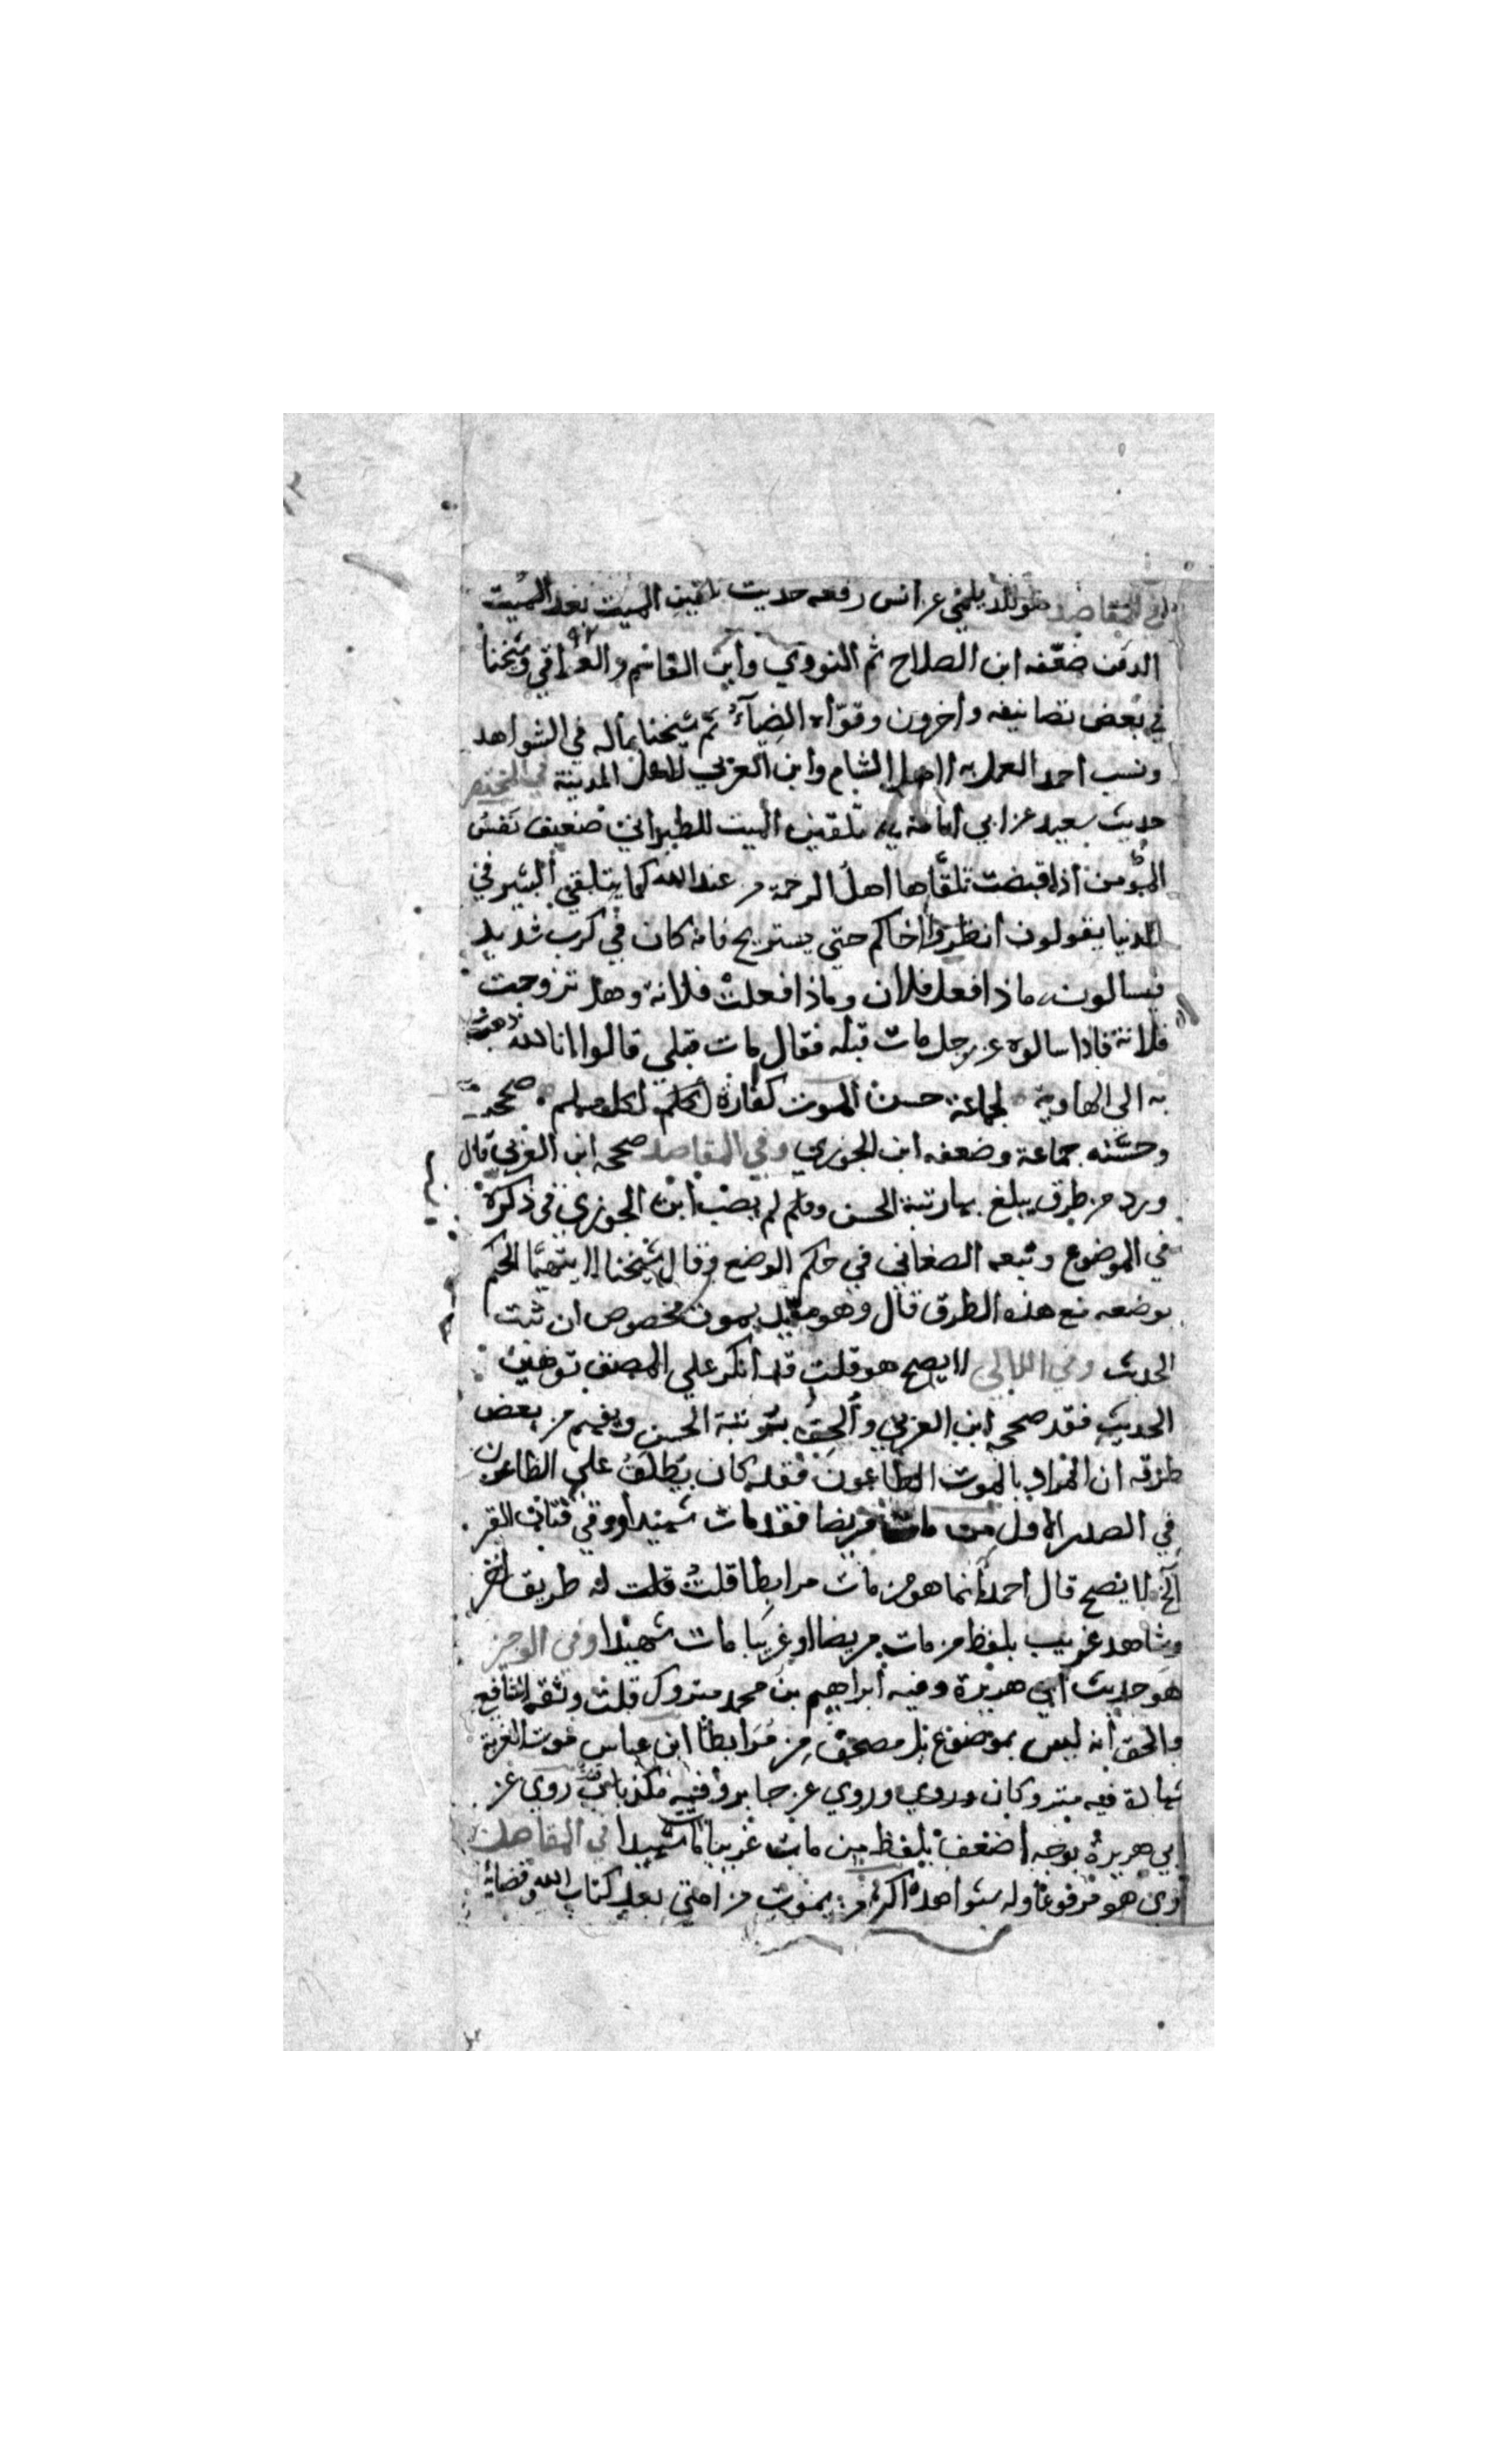 في المقاصد هو للديلمي عن انس رفعه حديث تلقين الميت بعد الميت
الدفن ضعفه ابن الصلاح ثم النووي وابن القاسم والعراقي وشيخنا
في بعض تصانيفه واخرون وقواه الضياء ثم شيخنا بماله في الشواهد
ونسب احمد العمل به لاهل الشام وابن العربي لاهل المدينة في المختصر
حديث سعيد عن ابي امامة في تلقين الميت للطبراني ضعيف نفس
المؤمن اذا قبضت تلقاها اهل الرحمة من عند الله كما يتلقي البشير في
الدنيا يقولون انظروا اخاكم حتي يستريح فانه كان في كرب شديد
فيسالون ماذا فعل فلان وماذا فعلت فلانة وهل تزوجت
فلانة فاذا سالوه عن رجل مات قبله فقال مات قبلي قالوا انا لله ذهبت
به الي الهاوية لجماعة حسن الموت كفارة لكل مسلم صححه
وحسنه جماعة وضعفه ابن الجوزي وفي المقاصد صححه ابن العربي قال
ورد من طرق يبلغ بها رتبة الحسن ولم يصب ابن الجوزي في ذكره
في الموضوع وتبعه الصغاني في حكم الوضع وقال شيخنا لا يتهيا الحكم
بوضعه مع هذه الطرق قال وهو مقيد بموت مخصوص ان ثبت
الحديث وفي اللالي لا يصح هو قلت قد انكر علي المصنف توهين
الحديث فقد صححه ابن العربي والحق بمرتبة الحسن ويفهم من بعض
طرقه ان المراد بالموت الطاعون فقد كان يطلق علي الطاعون
في الصدر الاول من مات مريضا فقد مات شهيدا ووقي فتان القبر
الخ لا يصح قال احمد انما هو من مات مرابطا قلت قلت له طريق اخر
وشاهد غريب بلفظ من مات مريضا او غريبا مات شهيدا وفي الوجيز
هو حديث ابي هريرة وفيه ابراهيم بن محمد متروك قلت وثقه الشافعي
والحق انه ليس بموضوع بل مصحف من مرابطا ابن عباس موت الغربة
شهادة فيه متروكان وروي وروي عن جابر وفيه مكذبان روي عن
ابي هريرة بوجه اضعف بلفظ من مات غريبا مات شهيدا في المقاصد
روي هو مرفوعا وله شواهد اكثر من يموت من امتي بعد كتاب الله وقضائه